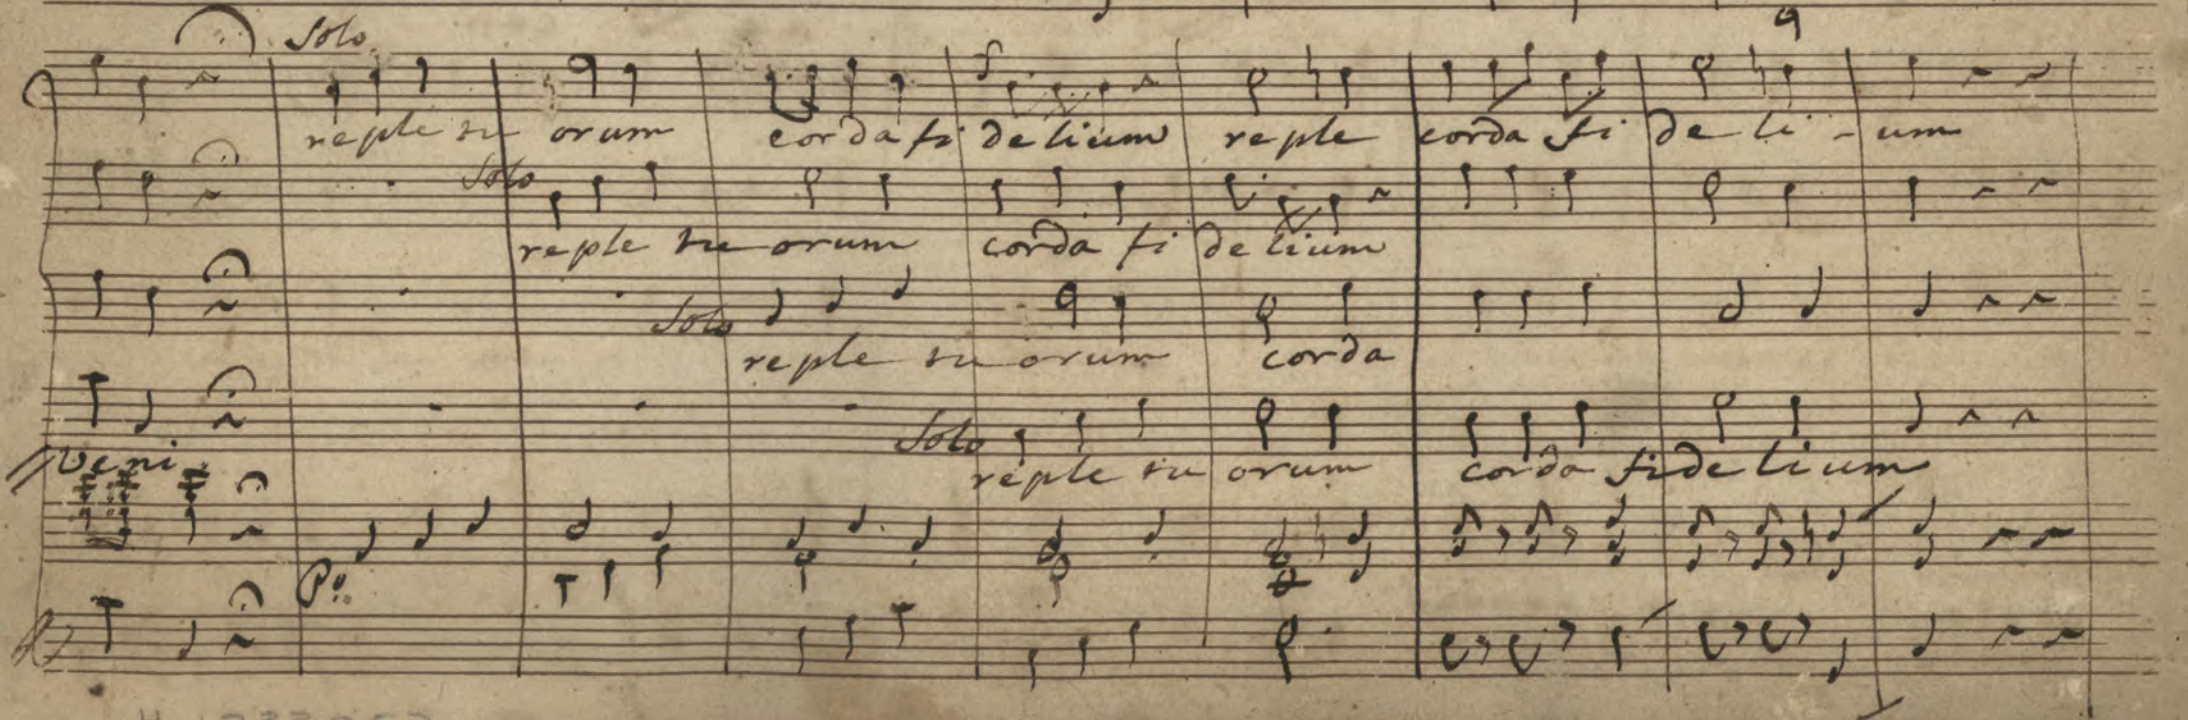 Solo
reple tu orum corda fi delium reple corda fi de li - um
Solo
reple tu orum corda fi delium
Solo
reple tu orum corda
Solo
veni
reple tu orum corda fidelium
Po: